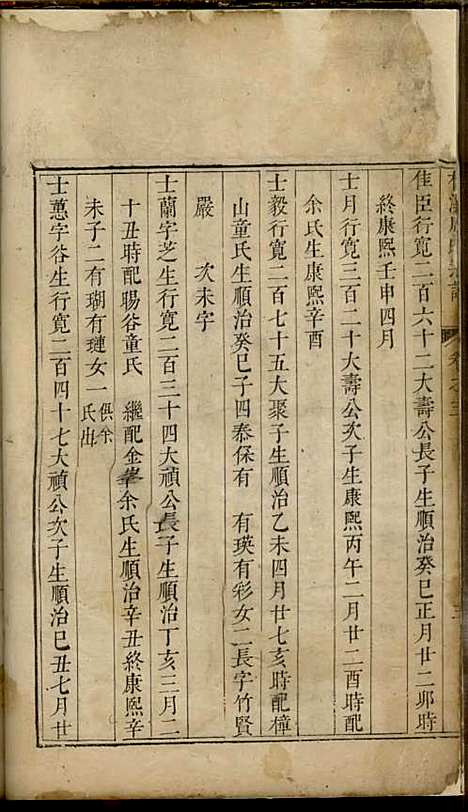 佳臣行寛二百六十二大壽公長子生順治癸巳正月廿二卯時
終康熙壬申四月
士月行寛三百二十大壽公次子生康熙丙午二月廿二酉時配
余氏生康熙辛酉
士毅行寛二百七十五大聚子生順治乙未四月廿七亥時配樟
山童氏生順治癸巳子四泰保有　有瑛有彩女二長字竹賢
嚴　次未字
士蘭字芝生行寛二百三十四大禎公長子生順治丁亥三月二
十丑時配暘谷童氏　繼配金峯余氏生順治辛丑終康熙辛
未子二有瑚有璉女一俱余氏出
士蕙字谷生行寛二百四十七大禎公次子生順治己丑七月廿